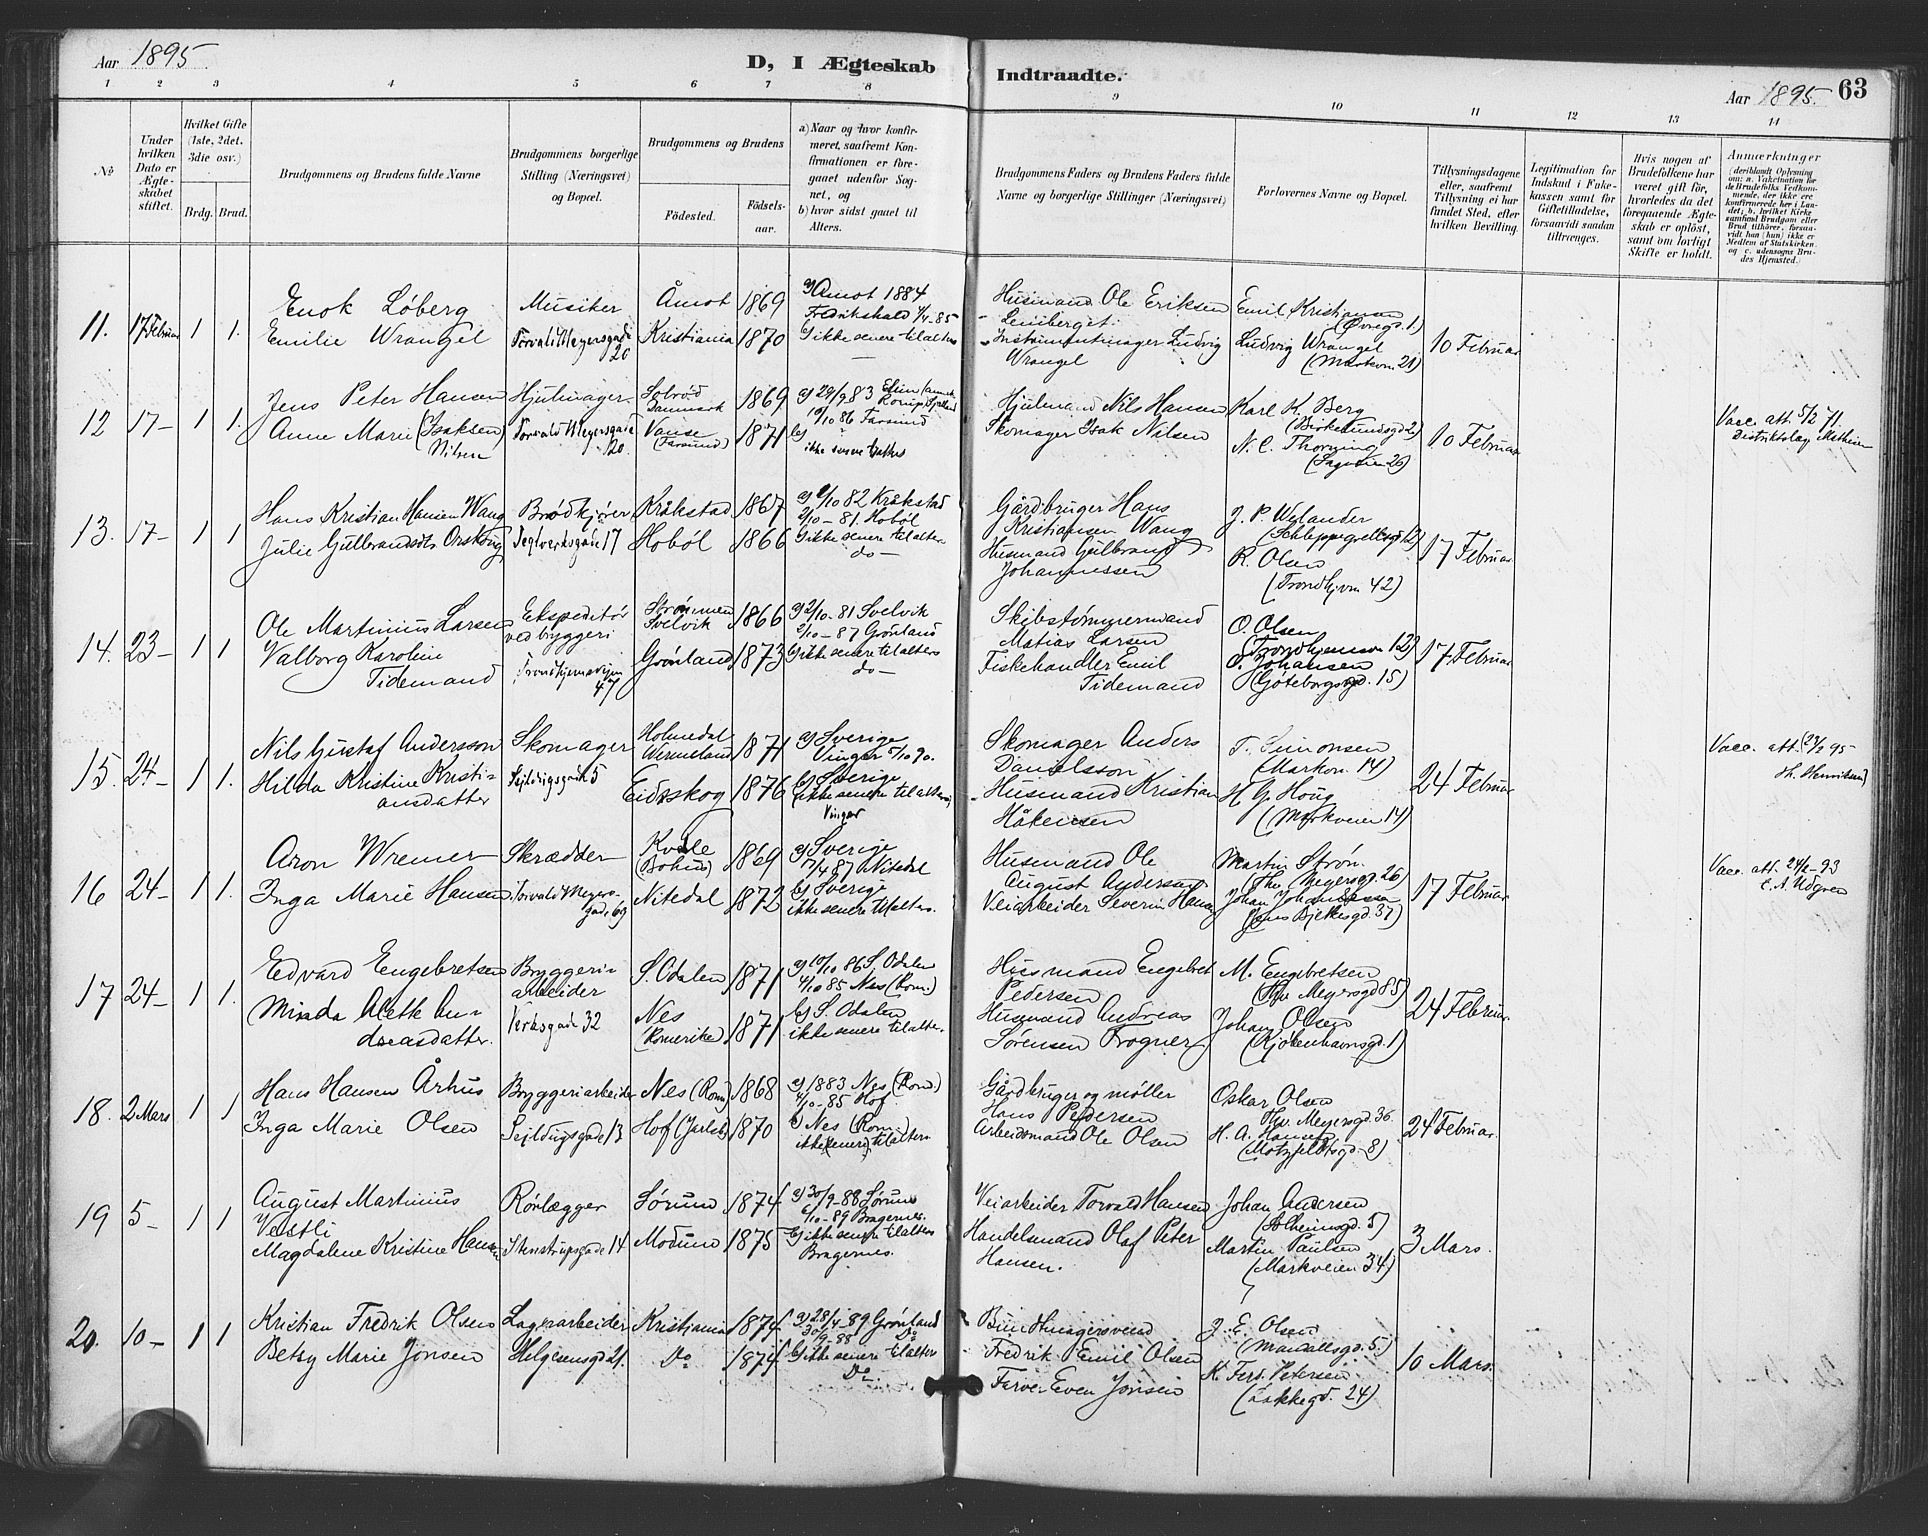 Aar 1895
D, I Ægteskab Indtraadte.
Aar 1895. 63
1 2 3 4 5 6 7 8 9 10 11 12 13 14
No
Under hvilken Dato er Ægteskabet stiftet.
Hvilket Gifte (1ste, 2det. 3die osv.)
Brdg. Brud.
Brudgommens og Brudens fulde Navne
Brudgommens borgerlige Stilling (Næringsvei) og Bopæl.
Brudgommens og Brudens
Födested.
Födselsaar.
a) Naar og hvor konfirmeret, saafremt Konfirmationen er foregaaet udenfor Sognet, og
b) hvor sidst gaaet til Alters.
Brudgommens Faders og Brudens Faders fulde Navne og borgerlige Stillinger (Næringsvei)
Forlovernes Navne og Bopæl.
Tillysningsdagene eller, saafremt Tillysning ei har fundet Sted, efter hvilken Bevilling.
Legitimation for Indskud i Enkekassen samt for Giftetilladelse, forsaavidt saadan tiltrænges.
Hvis nogen af Brudefolkene har været gift för, hvorledes da det foregaaende Ægteskab er oplöst, samt om lovligt Skifte er holdt.
Anmærkninger
(deriblandt Oplysning om: a. Vakcination for de Brudefolks Vedkommende, der ikke ere konfirmerede her i Landet; b. hvilket Kirkesamfund Brudgom eller Brud tilhörer, forsaavidt han (hun) ikke er Medlem af Statskirken, og c. udensogns Brudes Hjemsted.)
11. 17 Februar 1 1.
Enok Løberg
Emilie Wrangel
Musiker
Torvald Meyersgade 20
Åmot 1869
Kristiania 1870
a) Amot 1884
Fredrikshald 85
b) ikke senere til alters
Husmand Ole Eriksen
Instrumentmager Ludvig
Wrangel
Emil Kristiansen
Ludvig Wrangel
(Markvn. 21)
10 Februar
12 17– 1 1.
Jens Peter Hansen
Anne Marie (Isaksen)
Nilsen
Hjulmager
Torvald Meyersgade
20.
Danmark 1869
Vanse
(Farsund) 1871
a) 29/9 83
10/10 86 Farsund
b)
ikke senere
Nils Hansen
Skomager Isak Nilsen
Karl K. Berg
(Birkelundsgd 2)
N. C. Thorning
10 Februar
Vacc. att. 5/2 71.
13. 17– 1 1
Hans Kristian Hansen Wang
Julie Gulbrandsdtr
Brødkjører
Teglverksgaden 17
Kråkstad 1867
Hobøl 1866
82 Kråkstad
2/10–81. Hobøl
b) ikke senere til alters
do–
Gårdbruger Hans
Kristiansen Wang
Husmand Gulbrand
Johannessen
J. P. Welander
(Schleppegrellsgd 12)
R. Olsen
(Trondhjvn 42)
17 Februar
14. 23– 1 1
Ole Martinius Larsen
Valborg Karoline
Tidemand
Ekspeditør
ved bryggeri
Trondhjemsveien
47
Strømmen
Svelvik 1866
Grønland 1873
a) 2/10–81 Svelvik
2/10–87 Grönland
b) ikke senere til alters
do–
Skibstømmermand
Matias Larsen
Fiskehandler Emil
Tidemand
O. Olsen
(Trondhjemsvn 12)
O. Johansen
(Göteborgsgd. 15)
17 Februar
15. 24– 1 1.
Nils Gustaf Andersson
Hilda Kristine Kristi-
ansdatter
Skomager
Sejldugsgade 5
Holmedal
Wermeland 1871
Eidsskog 1876
a) Sverige
Vinger 5/10 90.
b) Sverige
ikke senere til alters
Vinger
Skomager Anders
Danielsson
Husmand Kristian
Håkensen
T. Simonsen
(Markvn. 14)
H. G. Houg
(Markveien 14)
24 Februar
Vacc. att. 95
16 24– 1 1.
Aron Wremer
Inga Marie Hansen
Skrædder
Torvald Meyers-
gade 69
(Bohus) 1869
Nitedal 1872
a) Sverige
87 Nitedal
b) Sverige
ikke senere til alters.
Husmand Ole
August Andersson
Veiarbeider Severin Hansen
Martin Strøm
(Thv. Meyersgd. 26)
Johan Johansen
(Jens Bjelkesgd. 37)
17 Februar
Vacc. att. 24/2–93
17 24– 1 1.
Edvard Engebretsen
Minda Alette An-
dreasdatter.
Bryggeri-
arbeider
Verksgade 32
S. Odalen 1871
Nes
(Romerike) 1871
a) 10/10 86 S. Odalen
4/10 85 Nes (Rom.)
b) S. Odalen
ikke senere til alters.
Husmand Engebret
Pedersen
Husmand Andreas
Sørensen Frogner
M. Engebretsen
(Thv. Meyersgd 85)
Johan Olsen
(Kjöbenhavnsgd. 1)
24 Februar
18. 2 Mars 1 1
Hans Hansen Århus
Inga Marie Olsen
Bryggeriarbeider
Sejldugsgade 13
Nes (Rom) 1868
Hof (Jarlsb) 1870
a) 1883 Nes (Rom.)
4/10–85 Hof
b) Nes (Rom.)
ikke (senere) til alters
Gårdbruger og møller
Hans Pedersen
Arbeidsmand Ole Olsen
Oskar Olsen
Thv. Meyersgd. 36
H. A. Hansen
(Motzfeldtsgd. 8)
24 Februar.
19 5– 1 1
August Martinius
Vestli
Magdalene Kristine Hansen
Rørlægger
Stenstrupsgade 14
Sørum 1874
Modum 1875
a) 30/9–88 Sørum
6/10–89 Bragernes.
b) ikke senere til alters
Bragernes.
Veiarbeider Torvald Hansen
Handelsmand Olaf Peter
Hansen.
Johan Andersen
(Solheimsgd. 5)
Martin Paulsen
(Markveien 34)
3 Mars.
20. 10– 1 1
Kristian Fredrik Olsen
Betsy Marie Jonsen
Lagerarbeider
Helgesensgd 21.
Kristiania 1874
Do 1874
a) 28/4–89 Grönland
30/9–88 Do
b) ikke senere til alters
Do.
Fredrik Emil Olsen
Farver Even Jonsen
J. E. Olsen
(Mandalsgd. 5.)
K. Ferd. Petersen
(Lakkegd. 24)
10 Mars.